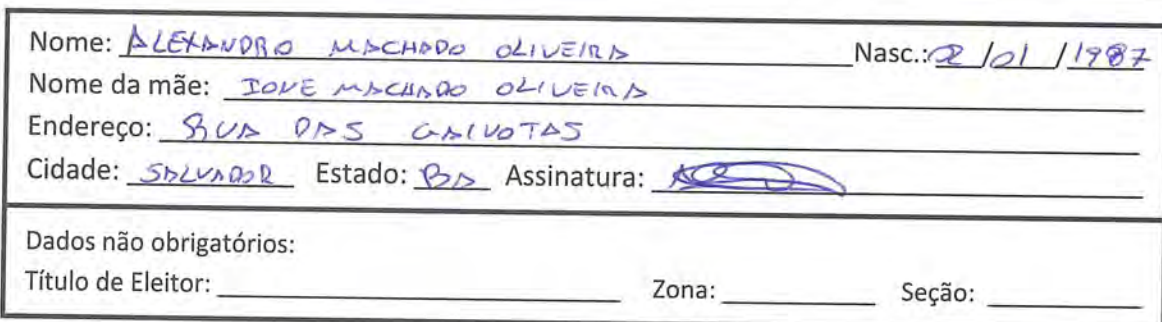 Nome: ALEXANDRO MACHADO OLIVEIRA Nasc.: 02/01/1987
Nome da mãe: IONE MACHADO OLIVEIRA
Endereço: RUA DAS GAIVOTAS
Cidade: SALVADOR Estado: BA Assinatura:
Dados não obrigatórios:
Título de Eleitor: Zona: Seção: